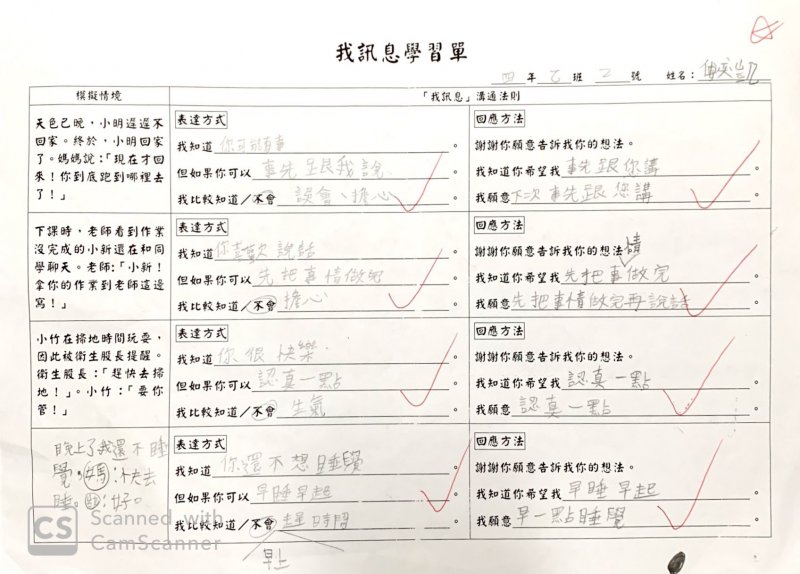 我訊息學習單
四年乙班2號 姓名：
模擬情境
「我訊息」溝通法則
天色已晚，小明遲遲不
回家。終於，小明回家
了。媽媽說：「現在才回
來！你到底跑到哪裡去
了！」
表達方式
我知道你可能有事
但如果你可以 事先跟我說。
我比較知道／不會 誤會、擔心。
回應方法
謝謝你願意告訴我你的想法。
我知道你希望我 事先跟你講。
我願意下次事先跟您講。
下課時，老師看到作業
沒完成的小新還在和同
學聊天。老師：「小新！
拿你的作業到老師這邊
寫！」
表達方式
我知道你喜歡說話
但如果你可以 先把事情做完。
我比較知道／不會 擔心。
回應方法
謝謝你願意告訴我你的想法。
我知道你希望我先把事情做完。
我願意先把事情做完再說話。
小竹在掃地時間玩耍，
因此被衛生股長提醒。
衛生股長：「趕快去掃
地！」。小竹：「要你
管！」
表達方式
我知道你很快樂。
但如果你可以 認真一點。
我比較知道／不會 生氣。
回應方法
謝謝你願意告訴我你的想法。
我知道你希望我 認真一點。
我願意 認真一點。
晚上了我還不睡
覺，媽：快去
睡。
好。
表達方式
我知道 你還不想睡覺。
但如果你可以 早睡早起。
我比較知道／不會 趕時間。
早上
回應方法
謝謝你願意告訴我你的想法。
我知道你希望我 早睡早起。
我願意早一點睡覺。
CS Scanned with
CamScanner